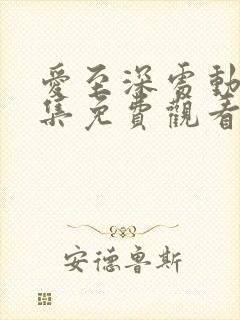 愛至深處動
集免費觀看
安德魯斯